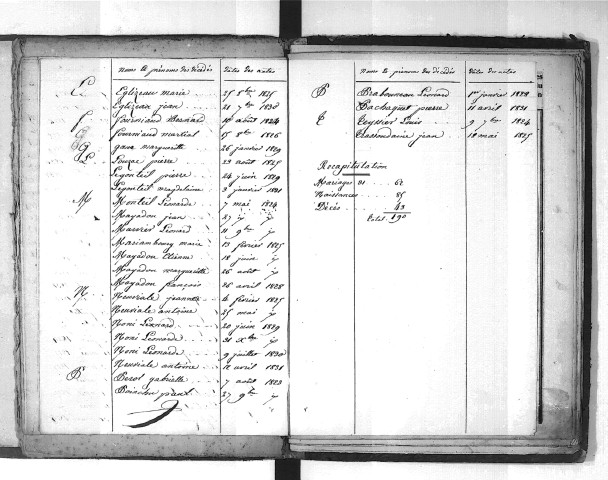 Noms et prénoms des décédés Dates des actes
E Eglizeau marie 25 8bre 1825
Eglizeau jean 21 7bre 1830
F Fourniaud Bernard 14 août 1824
Fourniaud martial 15 8bre 1826
G gane marguerite 26 janvier 1829
L Louzac pierre 23 août 1825
Leyonteil pierre 24 juin 1829
Leyonteil magdeleine 3 janvier 1831
M Monteil Léonarde 7 mai 1824
Mayadou jean 27 id
Mavrier Léonard 11 9bre id
Mariambourg marie 13 février 1825
Mayadou Etienne 18 juin id
Mayadou marguerite 26 août id
Mayadou françois 26 avril 1828
N Neuviale jeanne 4 février 1825
Neuviale antoine 25 mai id
Noni Léonard 20 juin 1829
Noni Léonarde 31 Xbre id
Noni Léonarde 9 juillet 1830
Neuviale antoine 11 avril 1831
P Perol gabrielle 7 août 1823
27 9bre id
Noms et prénoms des décédés Dates des actes
P Praboureau Léonard 1er janvier 1828
Pachaquet pierre 11 avril 1831
T Teyssier Louis 9 7bre 1824
Trassoudaine jean 18 mai 1825
Recapitulation
Mariages 62
Naissances 85
Décès 43
Total 190